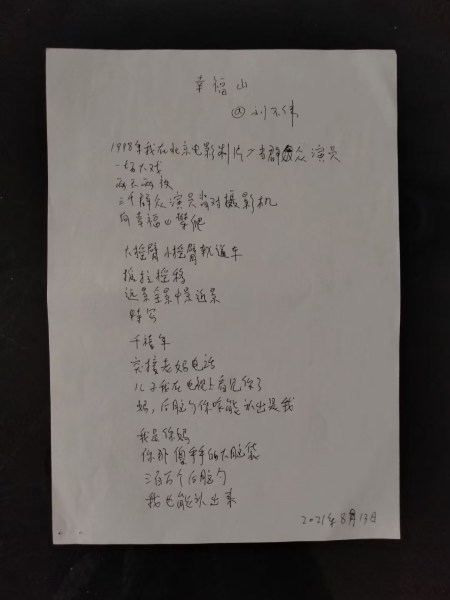 幸福山
@刘不伟
1998年我在北京电影制片厂当群众演员
一场大戏
两天两夜
三千群众演员背对摄影机
向幸福山攀爬
大摇臂小摇臂轨道车
推拉摇移
远景全景中景近景
特写
千禧年
突接老妈电话
儿子我在电视上看见你了
妈，后脑勺你咋能认出是我
我是你妈
你那傻乎乎的大脑袋
三百万个后脑勺
我也能认出来
2021年8月13日